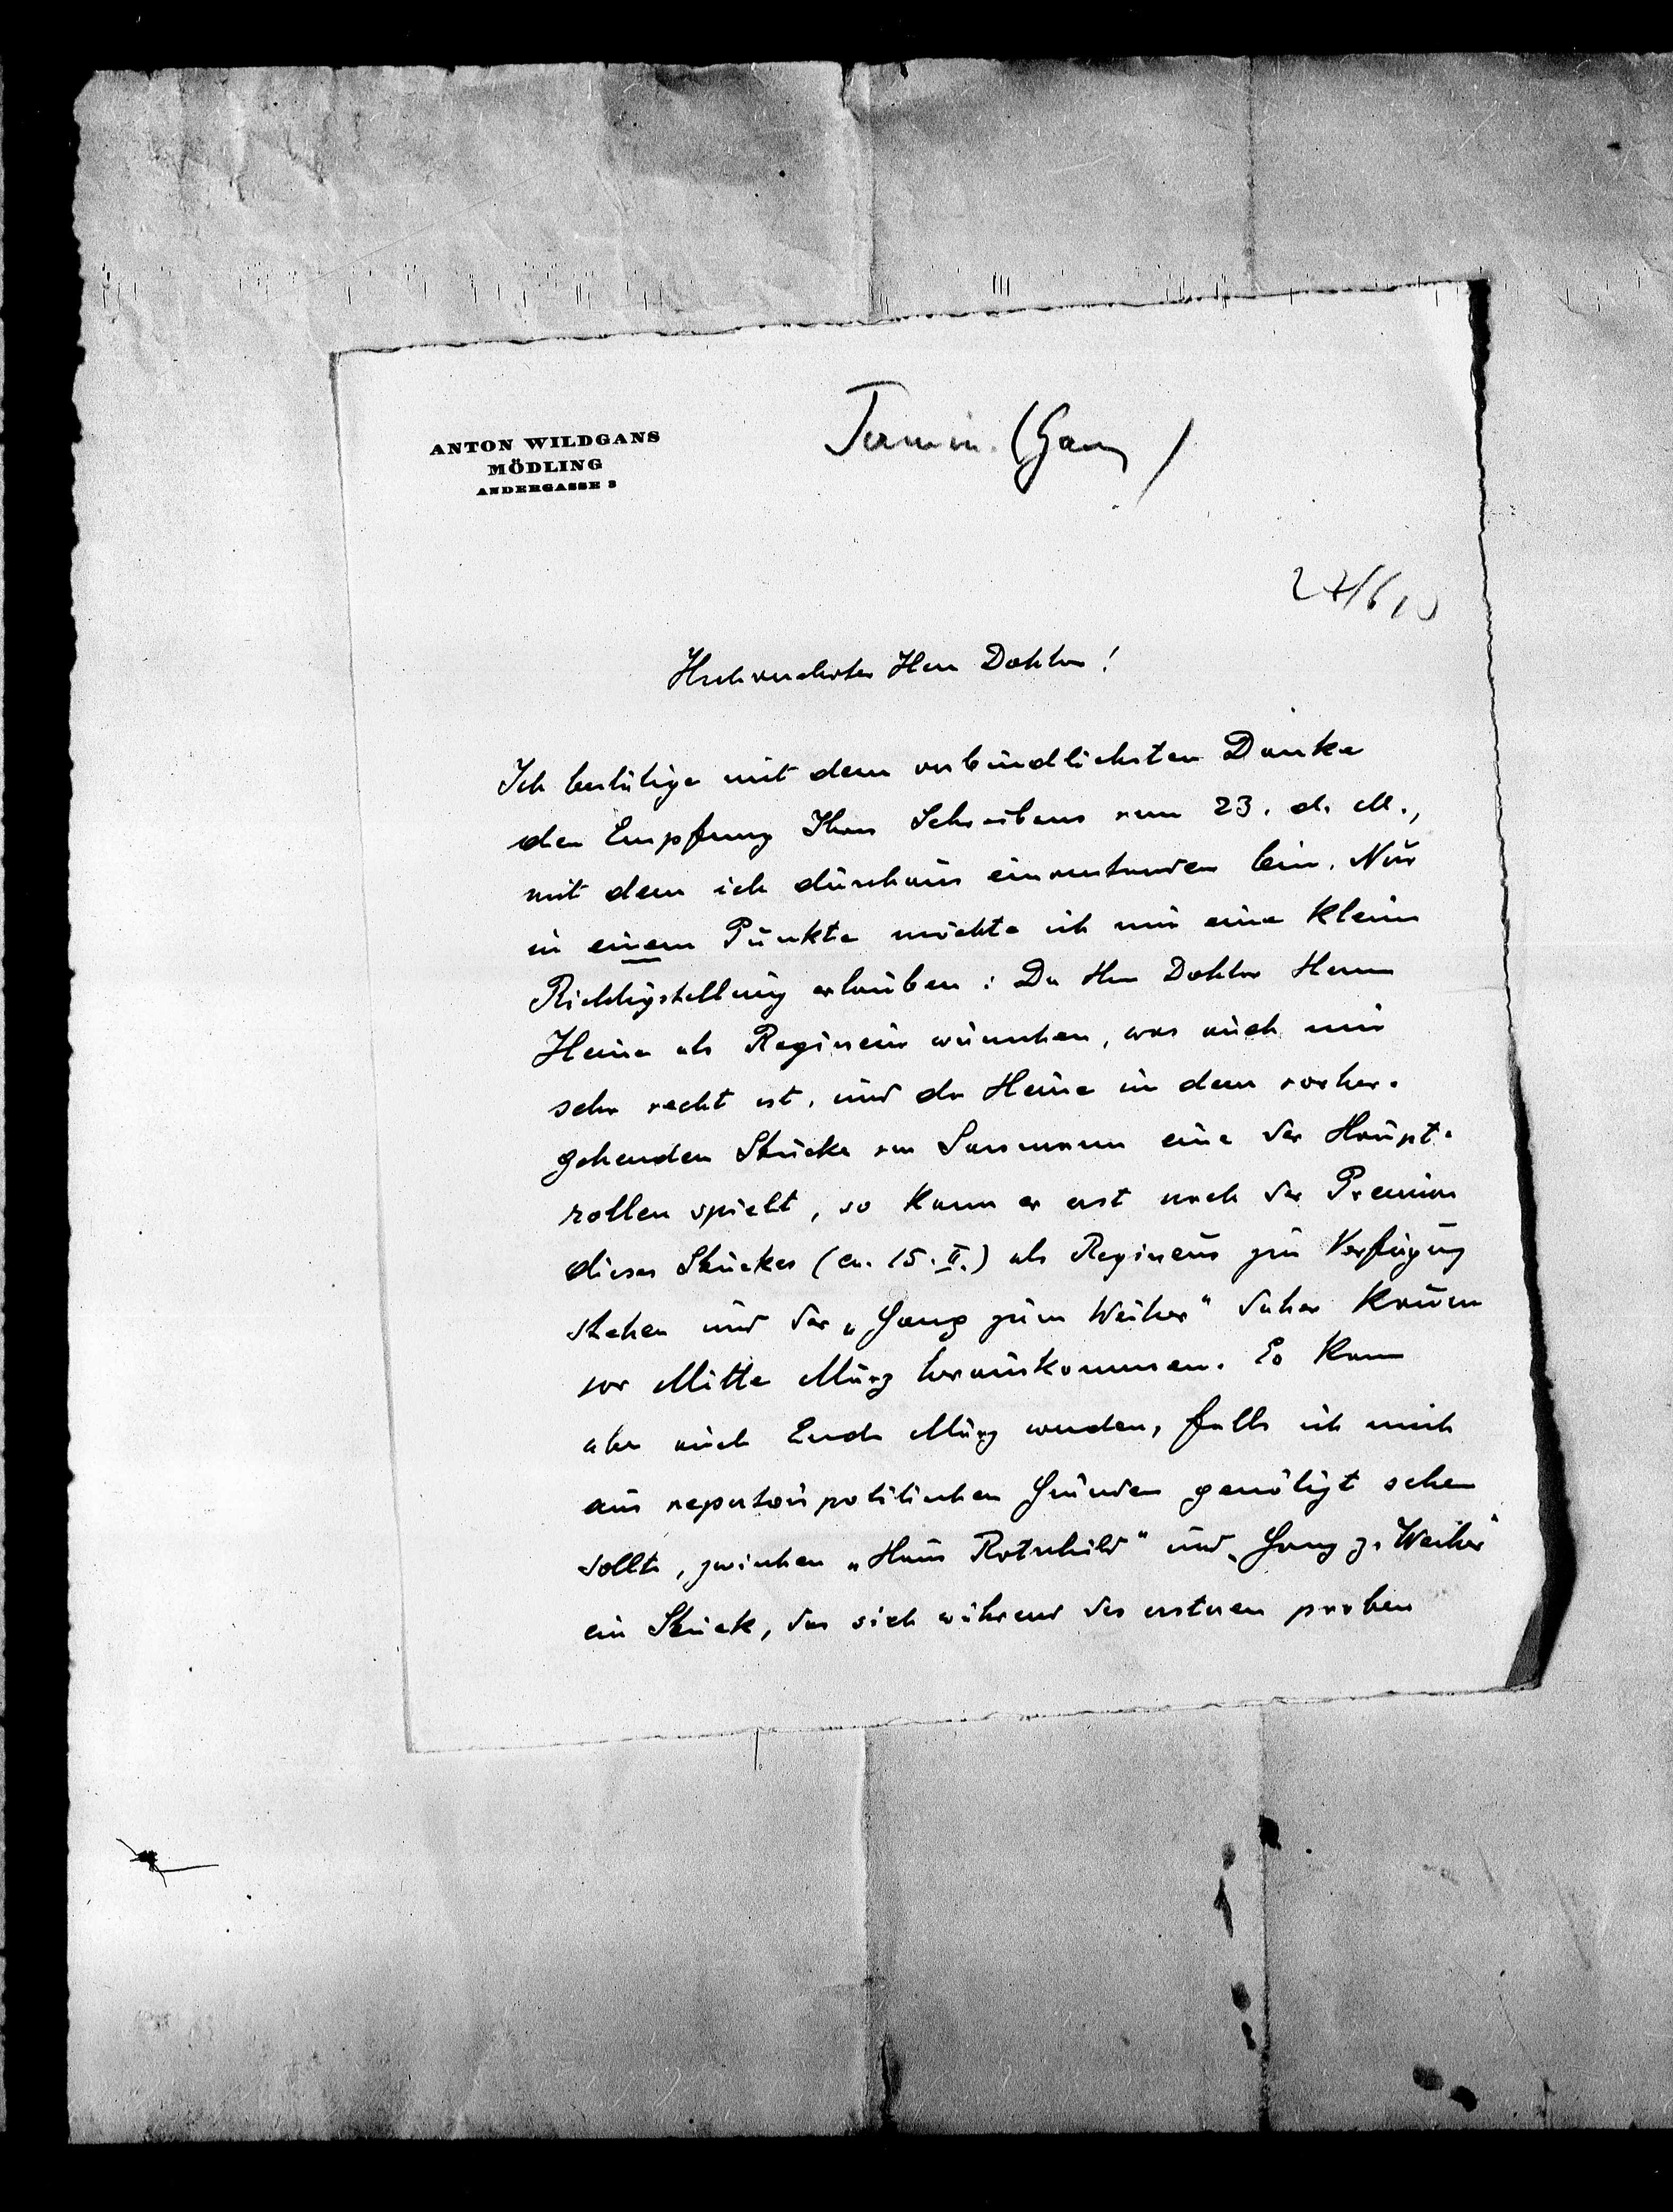 ANTON WILDGANS
MÖDLING
ANDERGASSE 3
Termin. (Gang)
Hochverehrter Herr Doktor!
Ich bestätige mit dem verbindlichsten Danke
den Empfang Ihres Schreibens vom 23. d. M.,
mit dem ich durchaus einverstanden bin. Nur
in einem Punkte möchte ich mir eine kleine
Richtigstellung erlauben: Da Herr Doktor Herrn
Heine als Regisseur wünschen, was auch mir
sehr recht ist, und da Heine in dem vorher-
gehenden Stücke von Sassmann eine der Haupt-
rollen spielt, so kann er erst nach der Premiere
dieses Stückes (ca. 15. II.) als Regisseur zur Verfügung
stehen und der „Gang zum Weiher" daher kaum
vor Mitte März herauskommen. Es kann
aber auch Ende März werden, falls ich mich
aus repertoirpolitischen Gründen genötigt sehen
sollte, zwischen „Haus Rotschild" und „Gang z. Weiher"
ein Stück, das sich während des ersteren proben